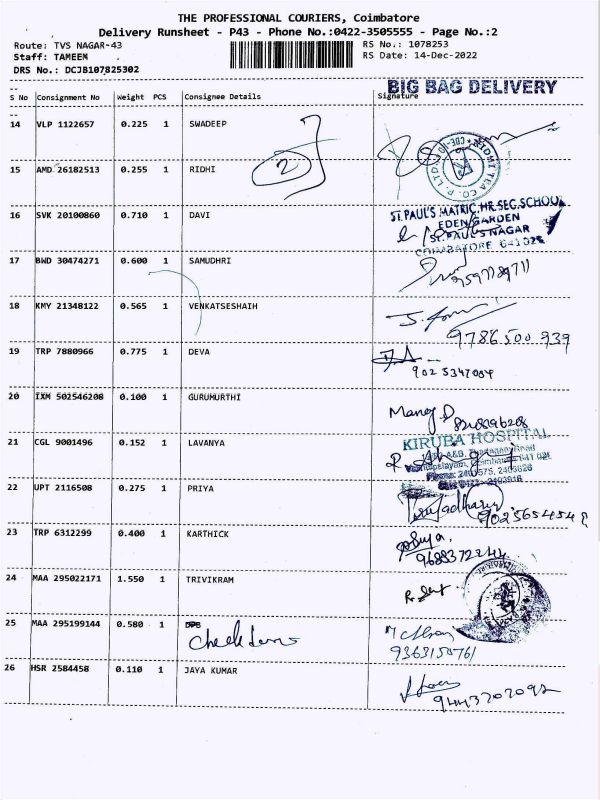 THE PROFESSIONAL COURIERS, Coimbatore
Delivery Runsheet - P43 - Phone No.:0422-3505555 - Page No.:2
Route: TVS NAGAR-43 RS No.: 1078253
Staff: TAMEEM RS Date: 14-Dec-2022
DRS No.: DCJB107825302
BIG BAG DELIVERY
S No Consignment No Weight PCS Consignee Details Signature
14 VLP 1122657 0.225 1 SWADEEP
2
15 AMD 26182513 0.255 1 RIDHI
RIDHI TEA CO. P. LTD.
16 SVK 20100860 0.710 1 DAVI
ST.PAUL'S MATRIC.HR.SEC.SCHOOL
EDEN GARDEN
ST.PAUL'S NAGAR
COIMBATORE 641 025
17 BWD 30474271 0.600 1 SAMUDHRI
18 KMY 21348122 0.565 1 VENKATSESHAIH
9786500 939
19 TRP 7880966 0.775 1 DEVA
902 5347084
20 IXM 502546208 0.100 1 GURUMURTHI
Manoj
21 CGL 9001496 0.152 1 LAVANYA
KIRUBA HOSPITAL
22 UPT 2116508 0.275 1 PRIYA
23 TRP 6312299 0.400 1 KARTHICK
24 MAA 295022171 1.550 1 TRIVIKRAM
25 MAA 295199144 0.580 1 DPB
9363150761
26 HSR 2584458 0.110 1 JAYA KUMAR